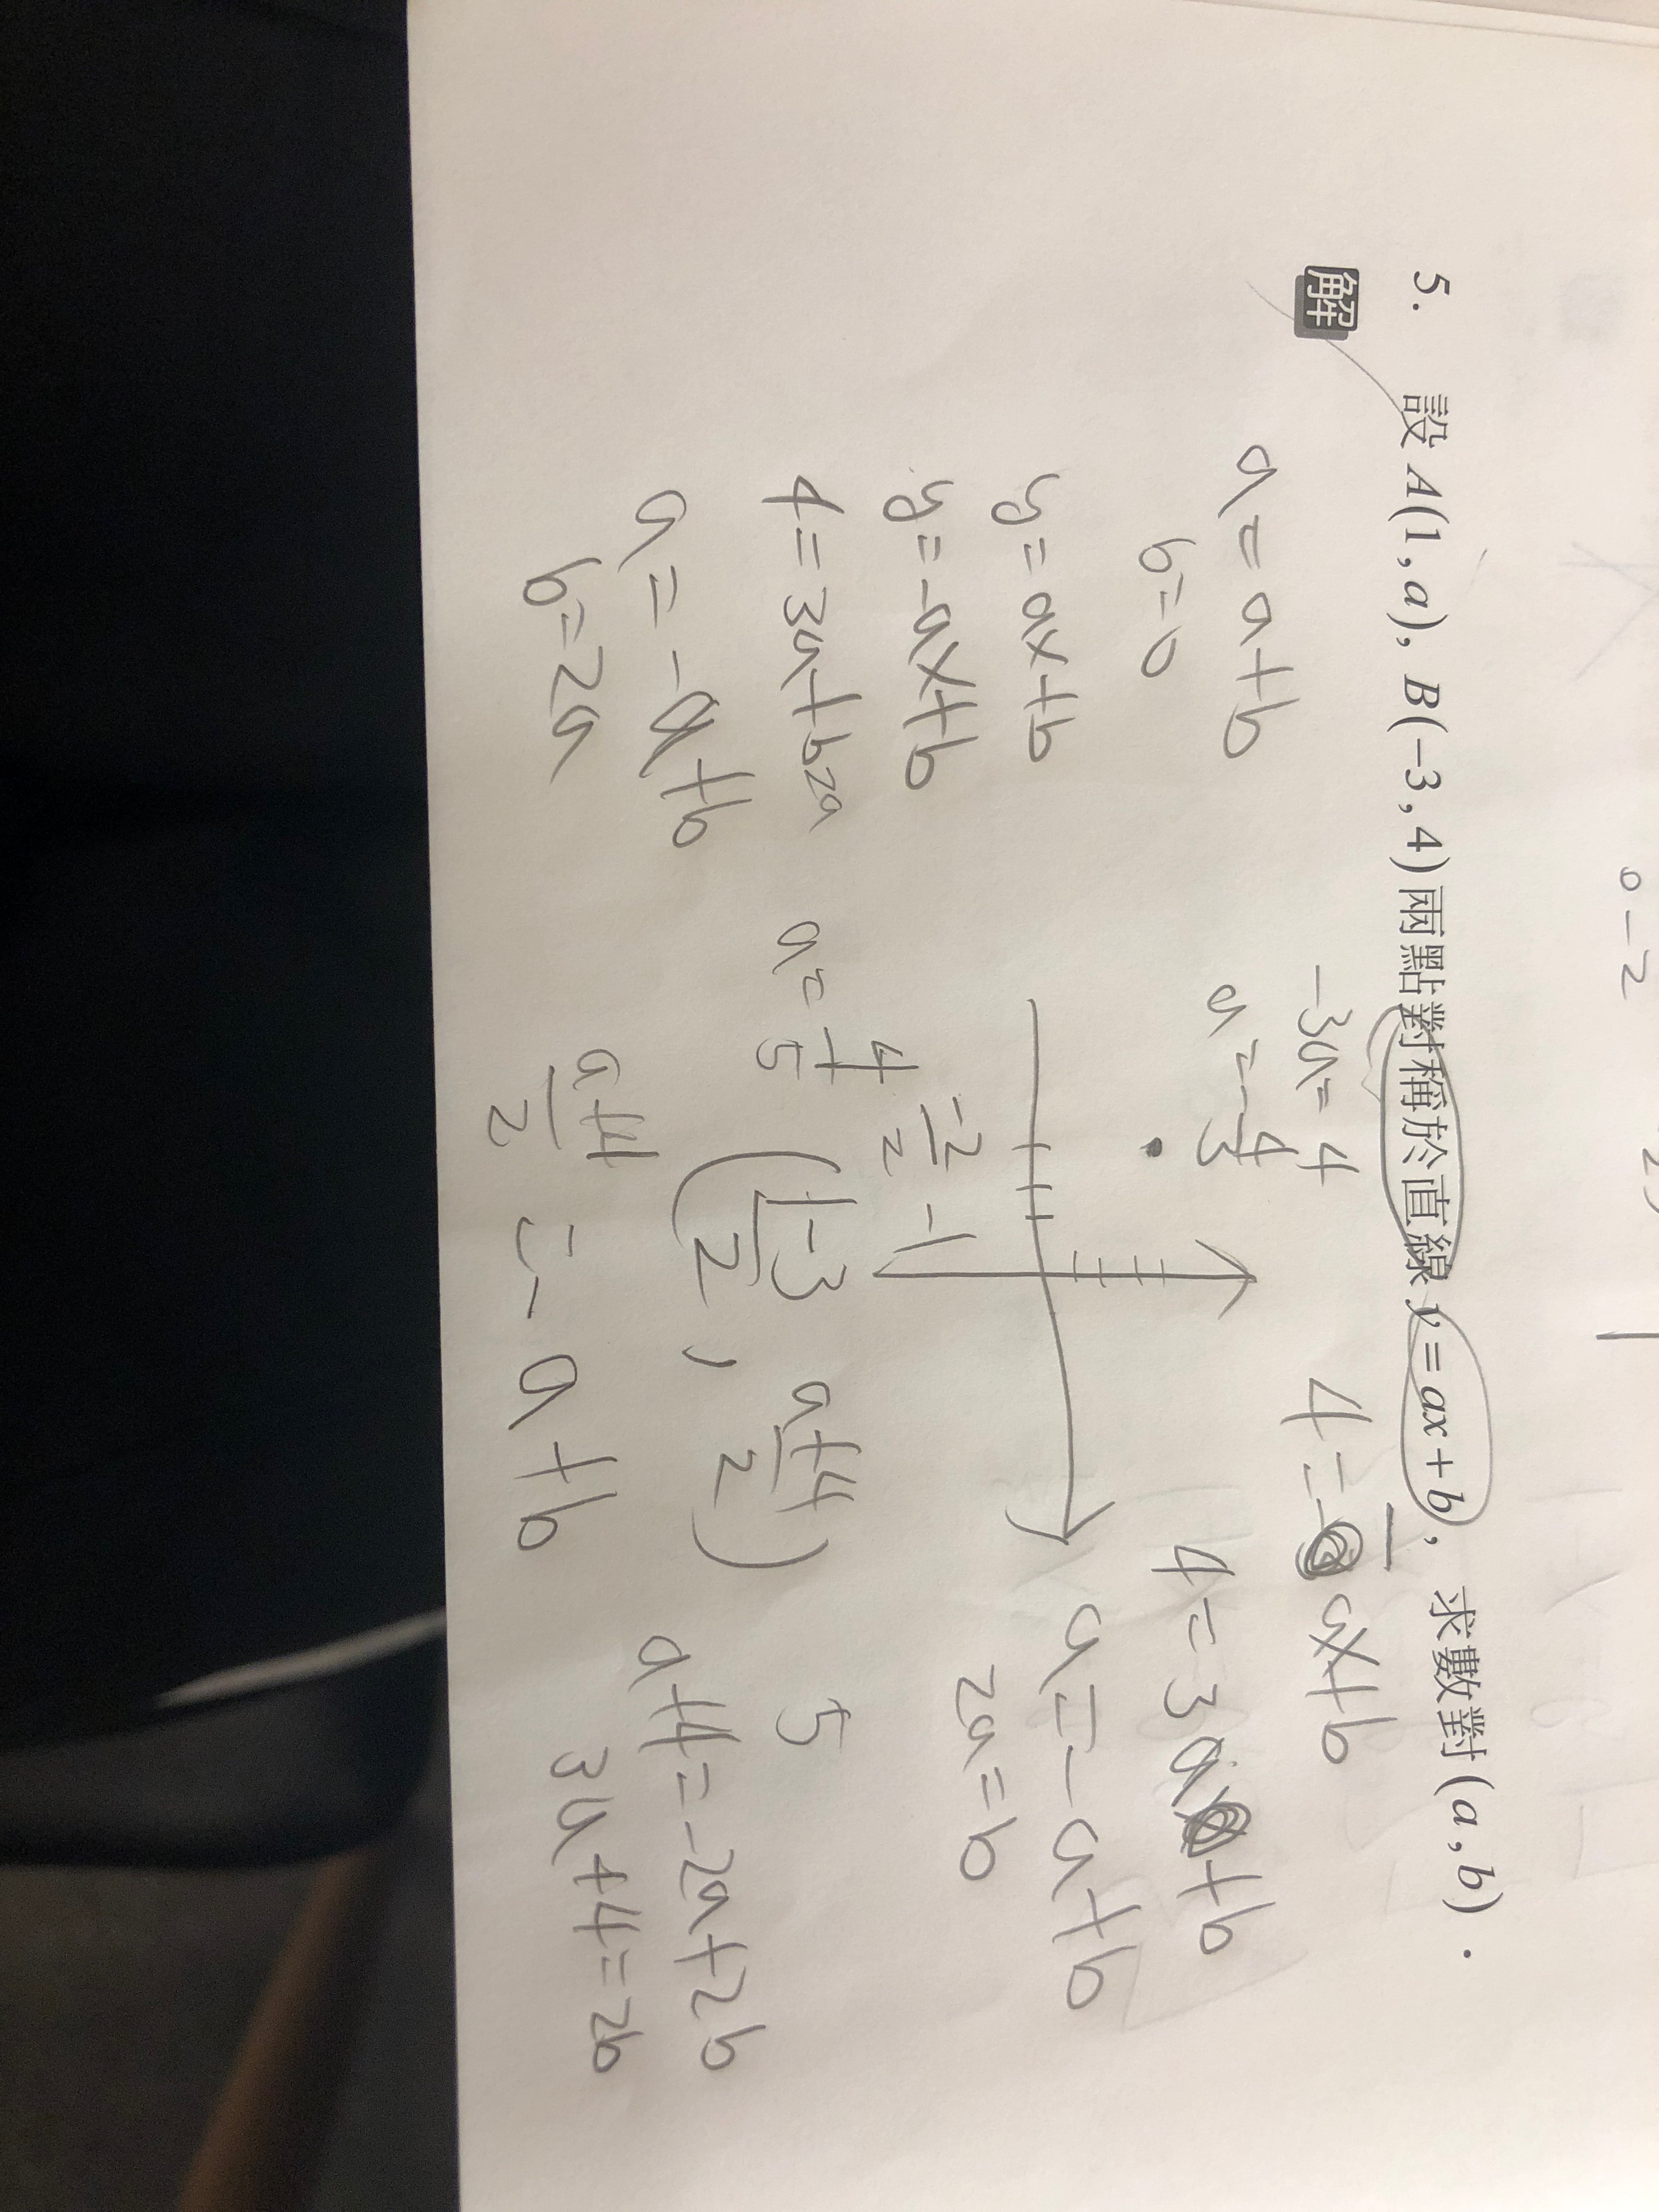 0-2
5. 設 A(1, a), B(-3, 4) 兩點對稱於直線 y = ax + b, 求數對 (a, b).
解
a = a+b
b=0
y = ax+b
y = -ax+b
4 = 3a+b 2a
a = -a+b
b=2a
-3a=4
a=-4/3
a=4/5
-2/2 -1
(1-3/2, a+4/2)
a+4/2 = -a+b
4=-ax+b
4=3a+b
a=-a+b
2a=b
5
a+4=-2a+2b
3a+4=2b